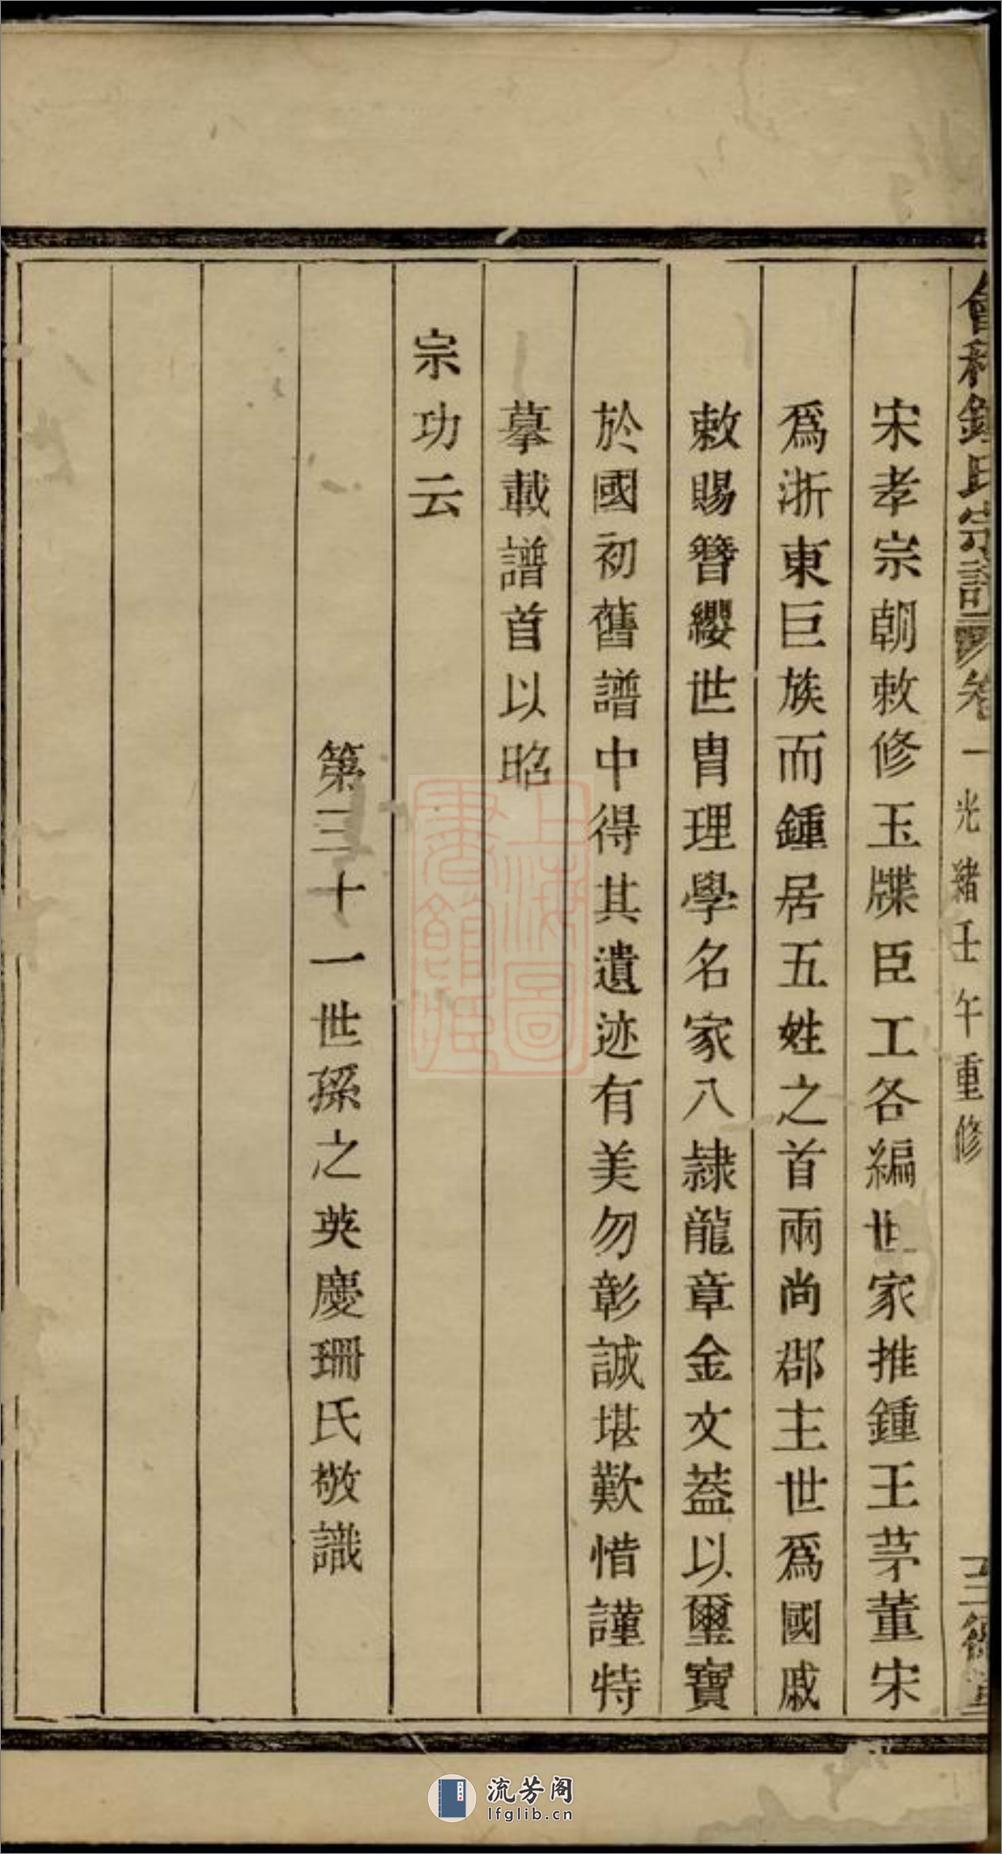 會稽鍾氏宗譜 卷一 光緒壬午重修
宋孝宗朝敕修玉牒臣工各編世家推鍾王茅董宋
爲浙東巨族而鍾居五姓之首兩尚郡主世爲國戚
敕賜簪纓世胄理學名家八隷龍章金文蓋以璽寶
於國初舊譜中得其遺迹有美勿彰誠堪歎惜謹特
摹載譜首以昭
宗功云
第三十一世孫之英慶珊氏敬識
上海圖
書館藏
流芳阁
lfglib.cn